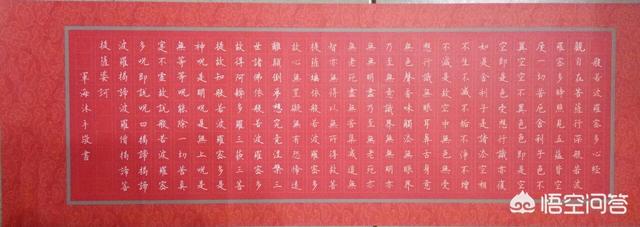 般若波羅蜜多心經
觀自在菩薩行深般若波
羅蜜多時照見五蘊皆空
度一切苦厄舍利子色不
異空空不異色色即是空
空即是色受想行識亦復
如是舍利子是諸法空相
不生不滅不垢不淨不增
不減是故空中無色無受
想行識無眼耳鼻舌身意
無色聲香味觸法無眼界
乃至無意識界無無明亦
無無明盡乃至無老死亦
無老死盡無苦集滅道無
智亦無得以無所得故菩
提薩埵依般若波羅蜜多
故心無罣礙無有恐怖遠
離顛倒夢想究竟涅槃三
世諸佛依般若波羅蜜多
故得阿耨多羅三藐三菩
提故知般若波羅蜜多是
神呪是明呪是無上呪是
無等等呪能除一切苦真
實不虛故說般若波羅蜜
多呪即說呪曰揭諦揭諦
波羅揭諦波羅僧揭諦菩
提薩婆訶
軍海沐手敬書
悟空问答